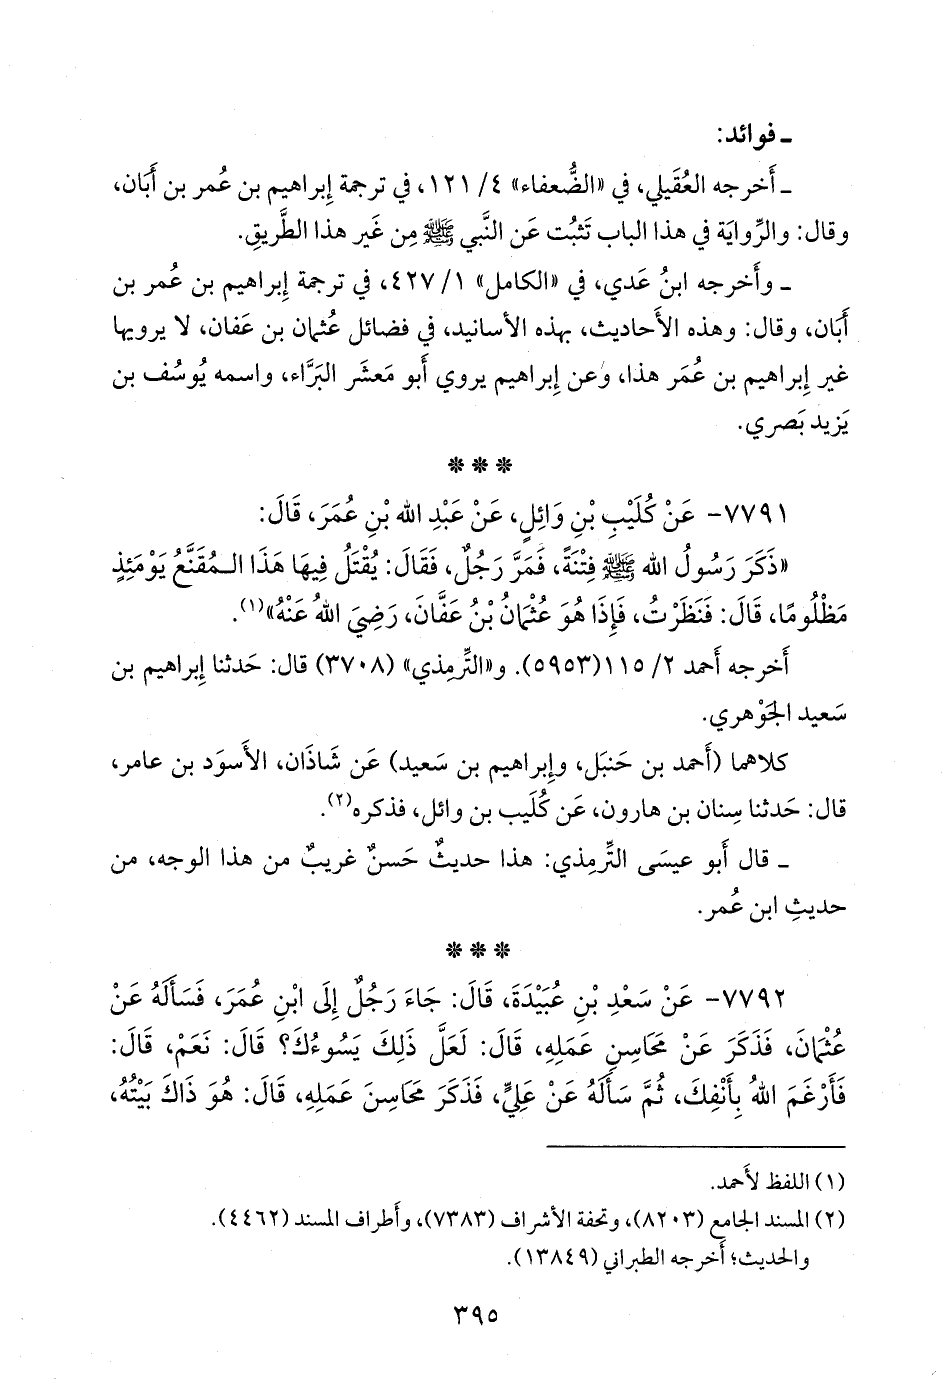 ـ فوائد:
ـ أَخرجه العُقَيلي، في «الضُّعفاء» ٤/ ١٢١، في ترجمة إِبراهيم بن عُمر بن أَبَان،
وقال: والرِّوايَة في هذا الباب تَثبُت عَن النَّبي ﷺ مِن غَير هذا الطَّريقِ.
ـ وأَخرجه ابنُ عَدي، في «الكامل» ١/ ٤٢٧، في ترجمة إِبراهيم بن عُمر بن
أَبَان، وقال: وهذه الأَحاديث، بهذه الأَسانيد، في فضائل عُثمان بن عَفان، لا يرويها
غير إِبراهيم بن عُمَر هذا، وعن إِبراهيم يروي أَبو مَعشَر البَرَّاء، واسمه يُوسُف بن
يَزيد بَصري.
* * *
٧٧٩١- عَنْ كُلَيْبِ بْنِ وَائِلٍ، عَنْ عَبْدِ الله بْنِ عُمَرَ، قَالَ:
«ذَكَرَ رَسُولُ الله ﷺ فِتْنَةً، فَمَرَّ رَجُلٌ، فَقَالَ: يُقْتَلُ فِيهَا هَذَا الـمُقَنَّعُ يَوْمَئِذٍ
مَظْلُومًا، قَالَ: فَنَظَرْتُ، فَإِذَا هُوَ عُثْمَانُ بْنُ عَفَّانَ، رَضِيَ اللهُ عَنْهُ»(١).
أَخرجه أَحمد ٢/ ١١٥(٥٩٥٣). و«التِّرمِذي» (٣٧٠٨) قال: حَدثنا إِبراهيم بن
سَعيد الجَوْهري.
كلاهما (أَحمد بن حَنبَل، وإِبراهيم بن سَعيد) عَن شَاذَان، الأَسوَد بن عامر،
قال: حَدثنا سِنان بن هارون، عَن كُلَيب بن وائل، فذكره(٢).
ـ قال أَبو عيسَى التِّرمِذي: هذا حديثٌ حَسنٌ غريبٌ من هذا الوجه، من
حديثِ ابن عُمر.
* * *
٧٧٩٢- عَنْ سَعْدِ بْنِ عُبَيْدَةَ، قَالَ: جَاءَ رَجُلٌ إِلَى ابْنِ عُمَرَ، فَسَأَلَهُ عَنْ
عُثْمَانَ، فَذَكَرَ عَنْ مَحَاسِنِ عَمَلِهِ، قَالَ: لَعَلَّ ذَلِكَ يَسُوءُكَ؟ قَالَ: نَعَمْ، قَالَ:
فَأَرْغَمَ اللهُ بِأَنْفِكَ، ثُمَّ سَأَلَهُ عَنْ عَلِيٍّ، فَذَكَرَ مَحَاسِنَ عَمَلِهِ، قَالَ: هُوَ ذَاكَ بَيْتُهُ،
(١) اللفظ لأَحمد.
(٢) المسند الجامع (٨٢٠٣)، وتحفة الأشراف (٧٣٨٣)، وأَطراف المسند (٤٤٦٢).
والحديث؛ أَخرجه الطبراني (١٣٨٤٩).
٣٩٥